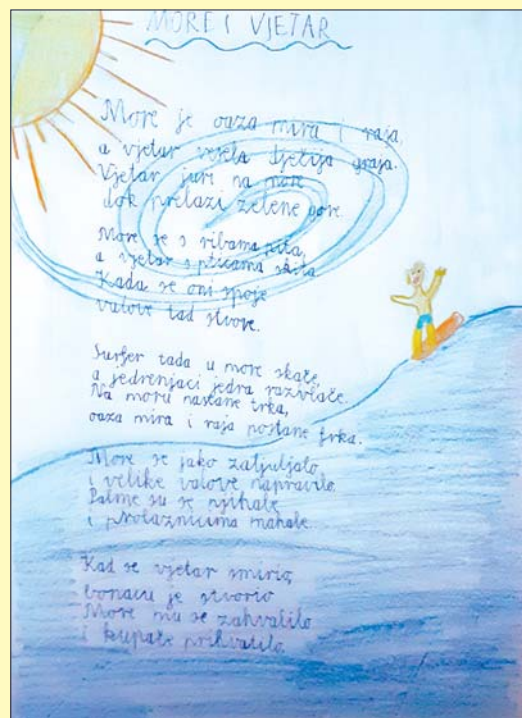 MORE I VJETAR
More je oaza mira i raja,
a vjetar vesela dječija graja.
Vjetar juri na more
dok prelazi zelene gore.
More se s ribama pita,
a vjetar s pticama skita
Kada se oni spoje
valove tad stvore.
Surfer tada u more skače,
a jedrenjaci jedra razvlače.
Na moru nastane trka,
oaza mira i raja postane frka.
More se jako zaljuljalo
i velike valove napravilo.
Palme su se njihale
i prolaznicima mahale.
Kad se vjetar smirio,
bonacu je stvorio
More mu se zahvalilo
i kupače prihvatilo.